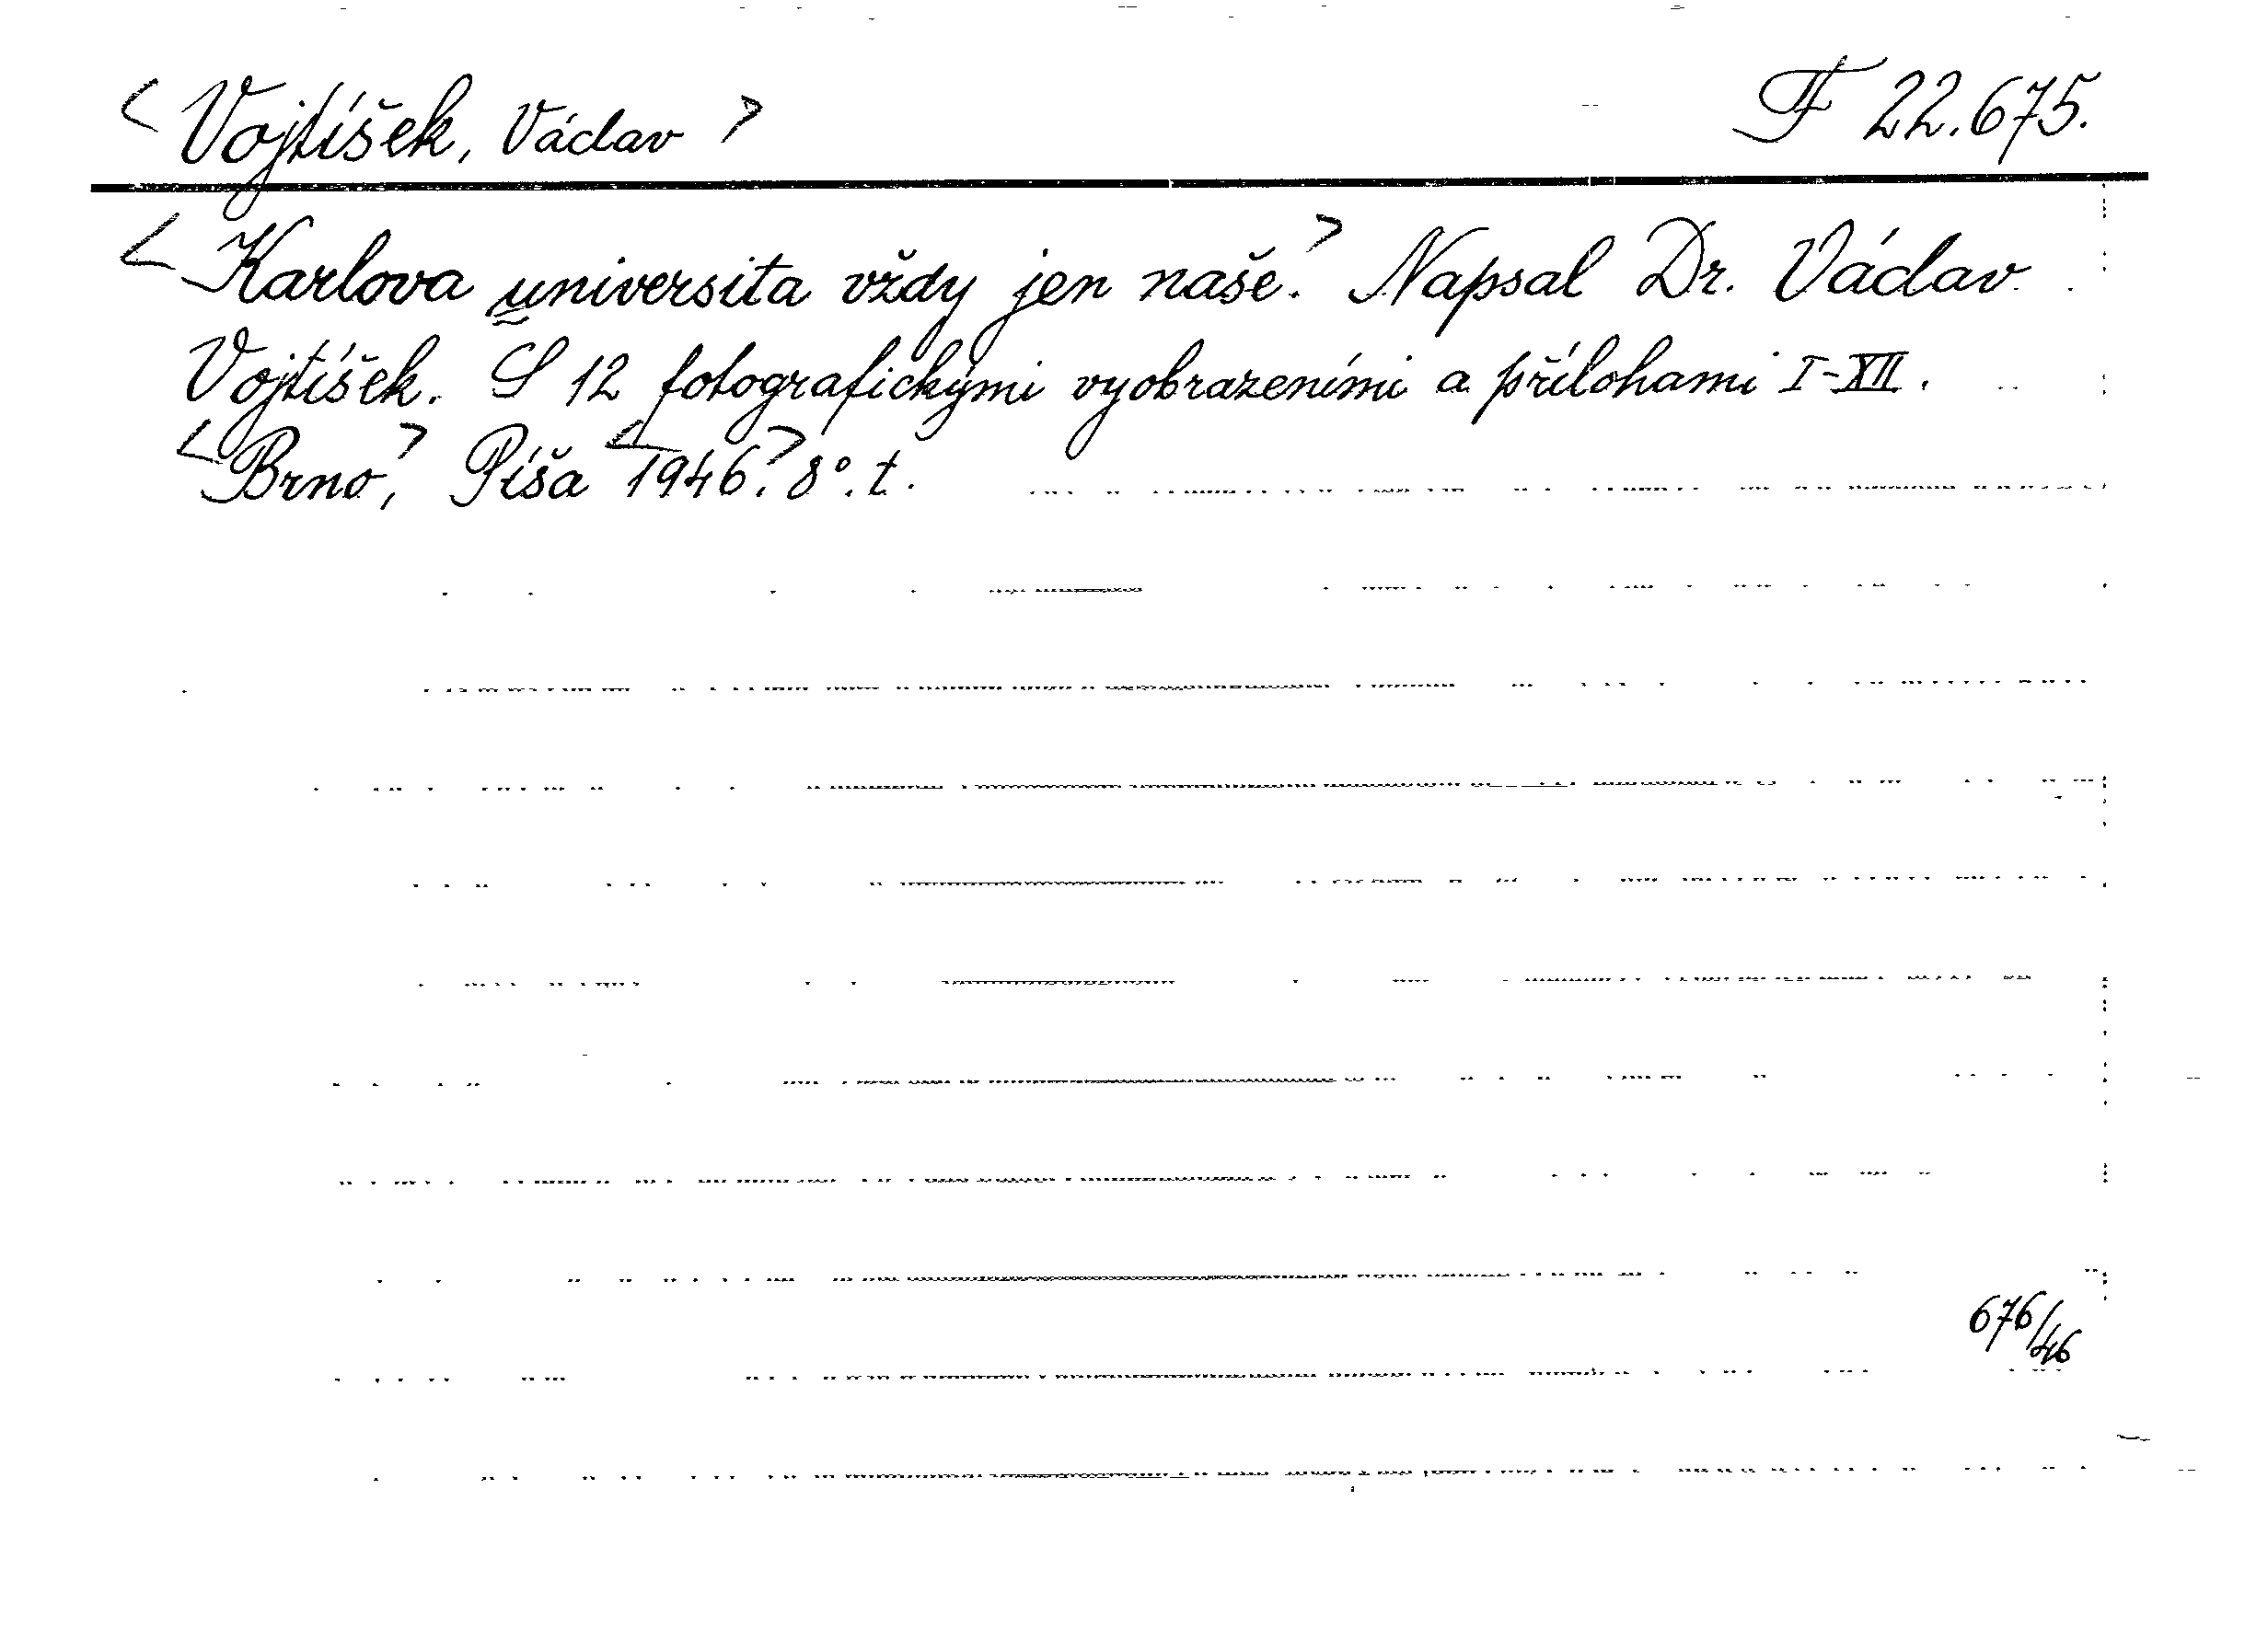 <Vojtíšek, Václav> F 22.675.
<Karlova universita vždy jen naše.> Napsal Dr. Václav
Vojtíšek. S 12 fotografickými vyobrazeními a přílohami I-XII.
<Brno,> Píša <1946.> 8°. t.
676/46